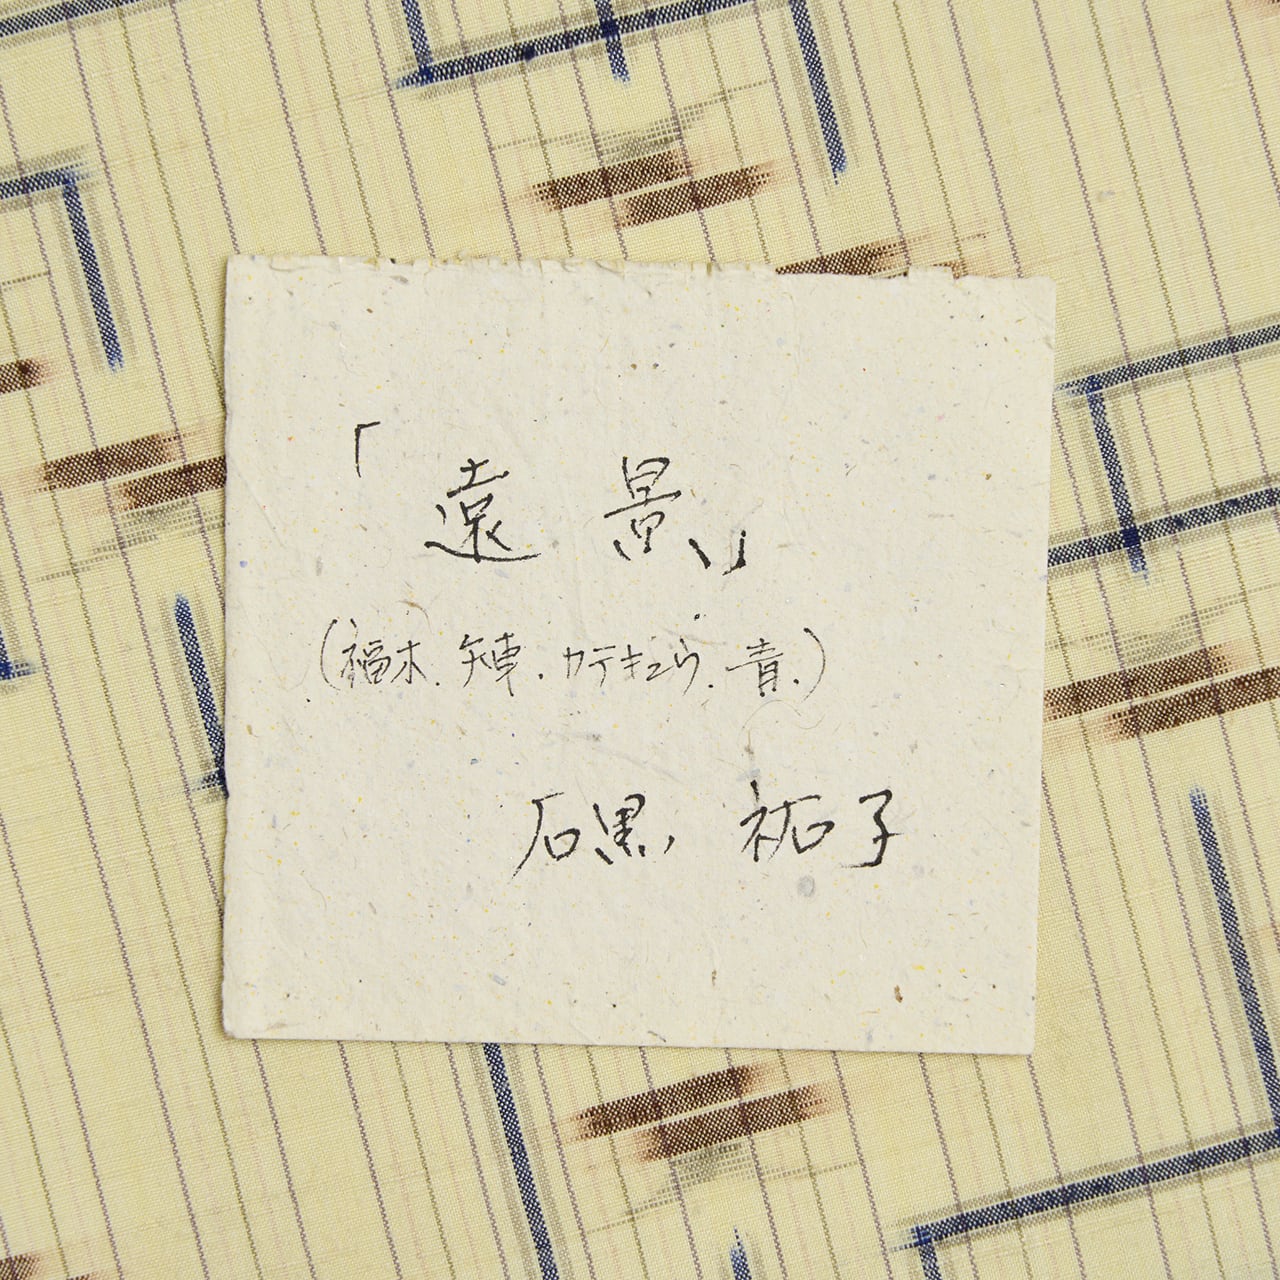 「遠景」
(福木.矢車.カテキュウ.青.)
石黒 祐子